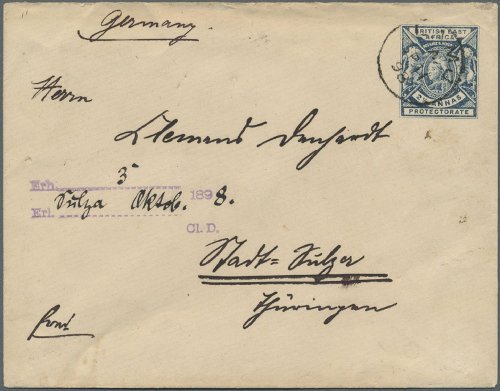 Germany
BRITISH EAST
AFRICA
ANNAS
PROTECTORATE
Herrn
Clemens Denhardt
Erh. 3
Sulza Oktob. 1898.
Erl.
Cl. D.
Stadt=Sulza
Thüringen